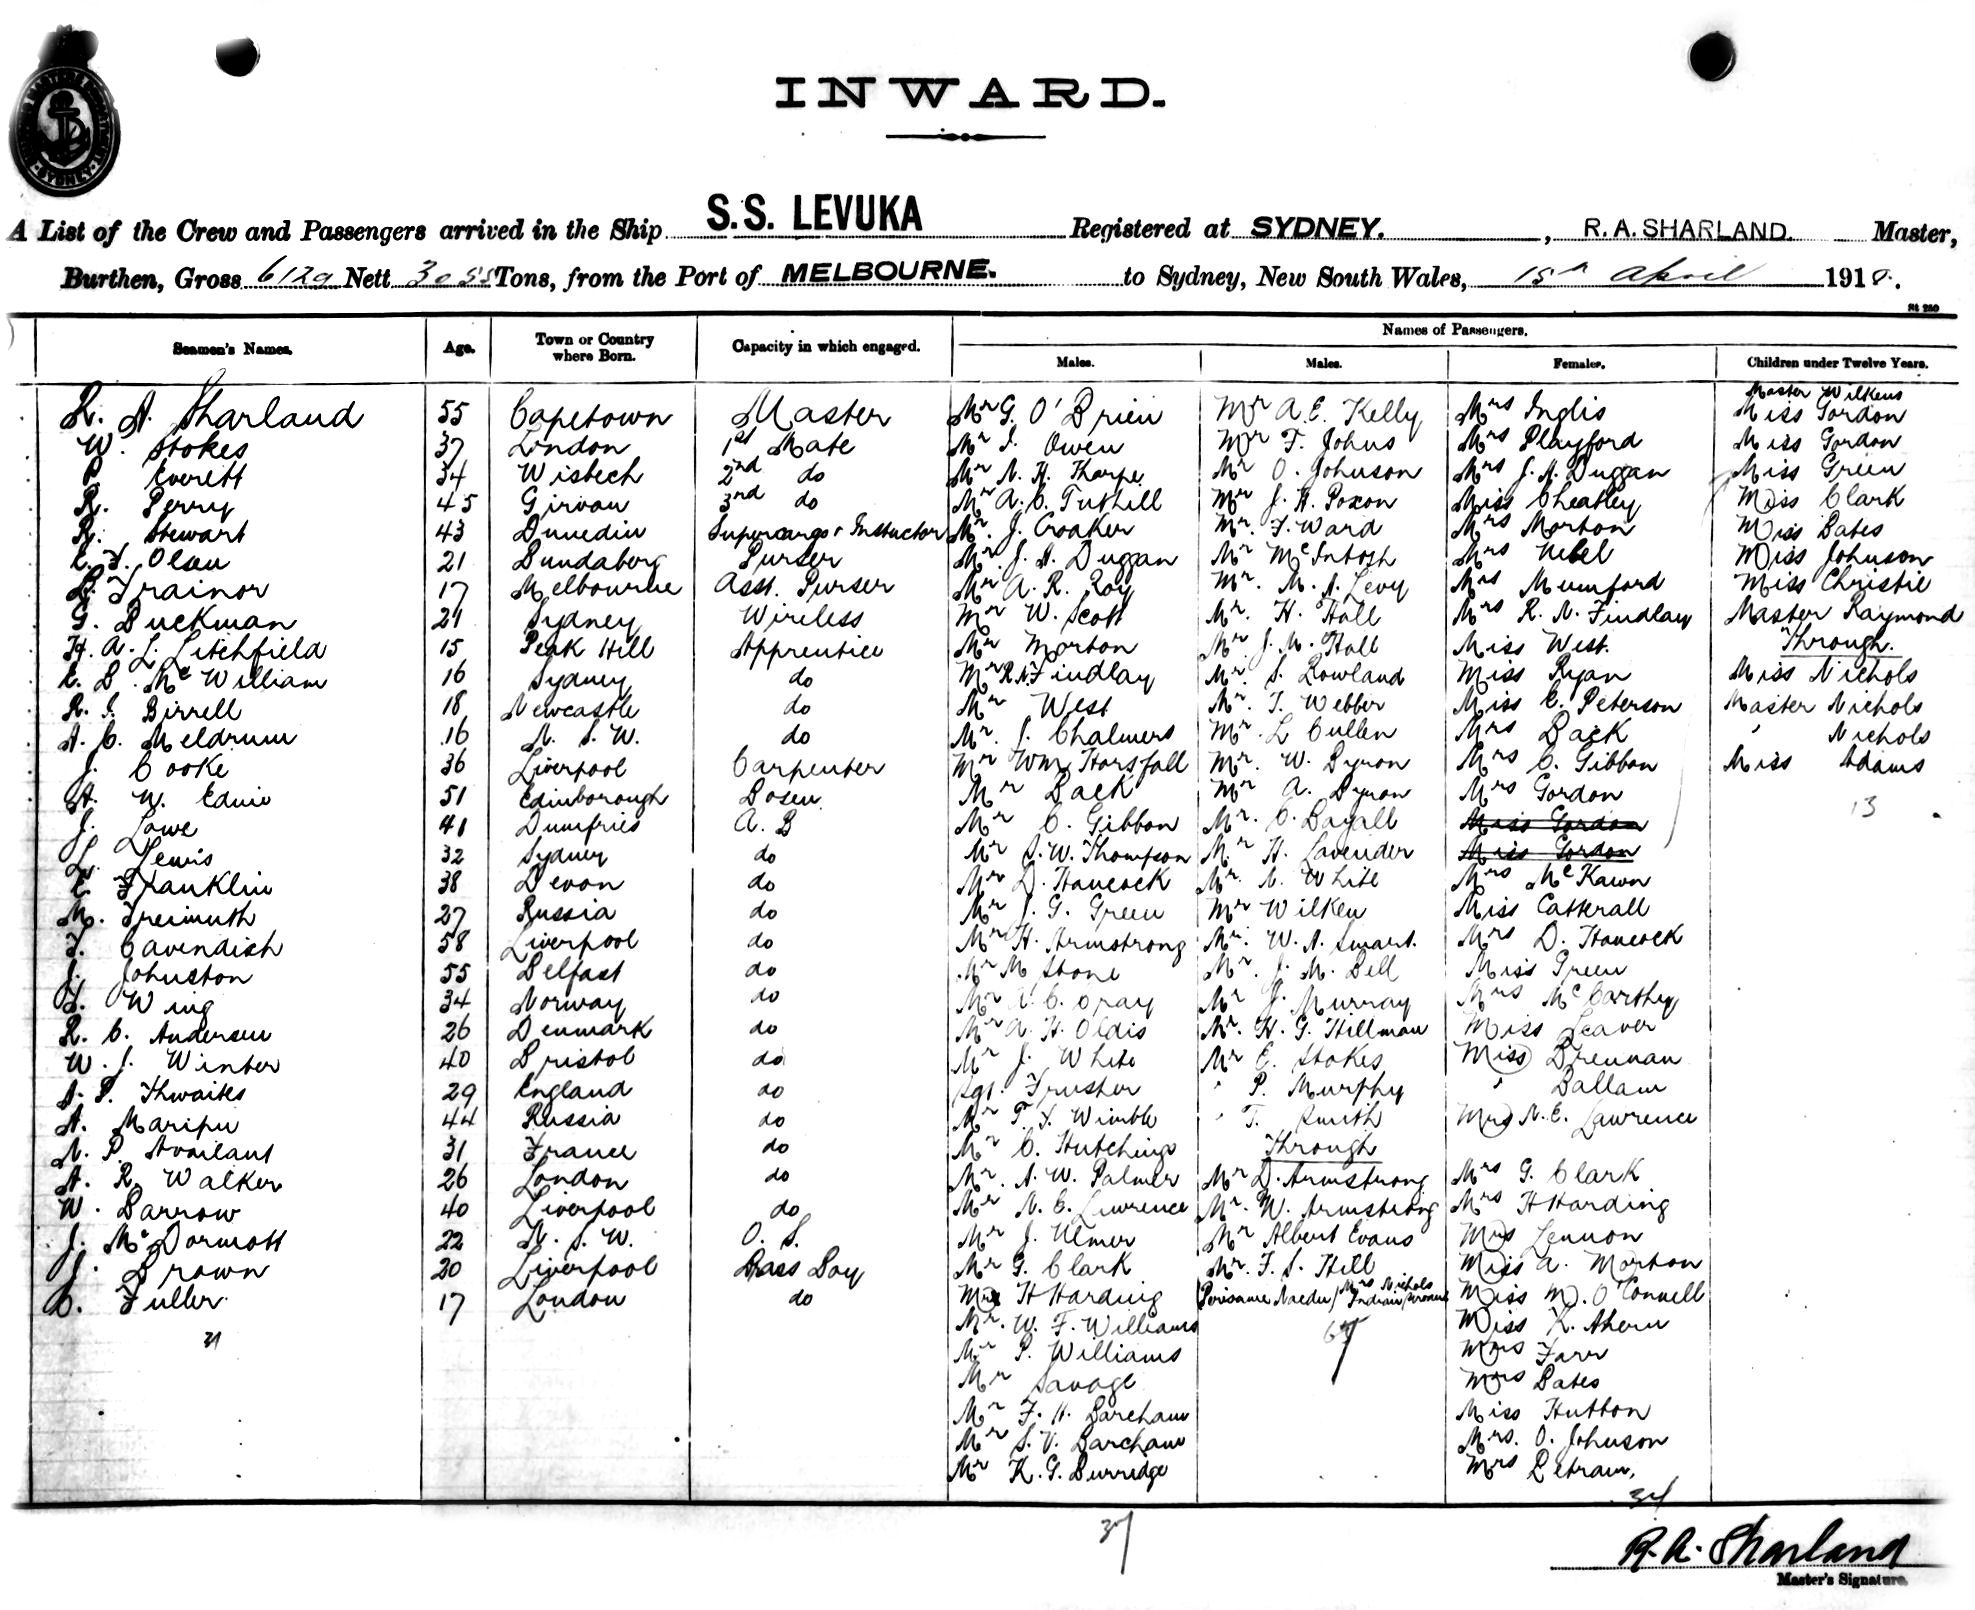 INWARD.
A List of the Crew and Passengers arrived in the Ship S.S. LEVUKA Registered at SYDNEY. , R. A. SHARLAND. Master,
Burthen, Gross 6129 Nett 3055 Tons, from the Port of MELBOURNE. to Sydney, New South Wales, 15th April 1918.
Seamen's Names. Age. Town or Country where Born. Capacity in which engaged. Names of Passengers.
Males. Males. Females. Children under Twelve Years.
Master Wilkens
R. A. Sharland 55 Capetown Master Mr G. O'Brien Mr A. E. Kelly Mrs Inglis Miss Gordon
W. Stokes 37 London 1st Mate Mr S. Owen Mr F. Johns Mrs Playford Miss Gordon
P. Everett 34 Wisbech 2nd do Mr N. H. Tharpe Mr O. Johnson Mrs J. A. Duggan Miss Green
R. Perry 45 Girvan 3rd do Mr A. C. Tuthill Mr J. H. Poxon Miss Cheatley Miss Clark
R. Stewart 43 Dunedin Supercargo & Instructor Mr. J. Croaker Mr. F. Ward Mrs Morton Miss Bates
E. F. Olsen 21 Bundaberg Purser Mr. J. A. Duggan Mr McIntosh Mrs Nebel Miss Johnson
L. Trainor 17 Melbourne Asst. Purser Mr A. R. Roy Mr. M. A. Levy Mrs Mumford Miss Christie
G. Buckman 21 Sydney Wireless Mr W. Scott Mr. H. Hall Mrs R. N. Findlay Master Raymond
H. A. L. Litchfield 15 Peak Hill Apprentice Mr Morton Mr J. M. Hall Miss West. Through.
E. B. McWilliam 16 Sydney do Mr R. N. Findlay Mr. S. Rowland Miss Ryan Miss Nichols
R. J. Birrell 18 Newcastle do Mr West Mr. T. Webber Miss C. Peterson Master Nichols
A. C. Meldrum 16 N. S. W. do Mr. S. Chalmers Mr. L Cullen Mrs Back " Nichols
J. Cooke 36 Liverpool Carpenter Mr Wm Horsfall Mr. W. Byron Mrs C. Gibbon Miss Adams
A. W. Ednie 51 Edinborough Bosen Mr Back Mr A. Byron Mrs Gordon 13
J. Lowe 41 Dumfries A. B Mr C. Gibbon Mr. C. Bayall Miss Gordon
L. Lewis 32 Sydney do Mr S. W. Thompson Mr H. Lavender Miss Gordon
E. Franklin 38 Devon do Mr D. Hancock Mr. N. White Mrs McKawn
M. Freimuth 27 Russia do Mr J. G. Green Mr Wilken Miss Catterall
T. Cavendish 58 Liverpool do Mr H. Armstrong Mr. W. A. Smart. Mrs D. Hancock
J. Johnston 55 Belfast do Mr M Stone Mr. J. M. Bell Miss Green
Wing 34 Norway do Mr A. C. Gray Mr J. Murray Mrs McCarthy
R. C. Andersen 26 Denmark do Mr A. H. Oldis Mr. H. G. Hillman Miss Leaver
W. J. Winter 40 Bristol do Mr J. White Mr E. Stokes Miss Brennan
A. P. Thwaites 29 England do Sgt. Fruster " P. Murphy " Ballam
A. Maripu 44 Russia do Mr T. F. Wimble " T. Smith Mrs N. E. Lawrence
N. P. Availant 31 France do Mr C. Hutchings Through
A. R. Walker 26 London do Mr. A. W. Palmer Mr D. Armstrong Mrs G. Clark
W. Barrow 40 Liverpool do Mr N. E. Lawrence Mr. W. Armstrong Mrs H Harding
J. McDormott 22 N. S. W. O. S. Mr J. Ulmer Mr Albert Evans Mrs Lennon
J. Brown 20 Liverpool Brass Boy Mr G. Clark Mr. F. S. Hill Miss A. Morton
C. Fuller 17 London do Mr H Harding Mrs Nichols Miss M. O'Connell
31 Mr. W. F. Williams 67 Miss K. Ahern
Mr P. Williams Mrs Farr
Mr Savage Mrs Bates
Mr F. H. Barcham Miss Hutton
Mr S. V. Barcham Mrs. O. Johnson
Mr K. G. Burridge Mrs Petram.
34
37
R. A. Sharland
Master's Signature.